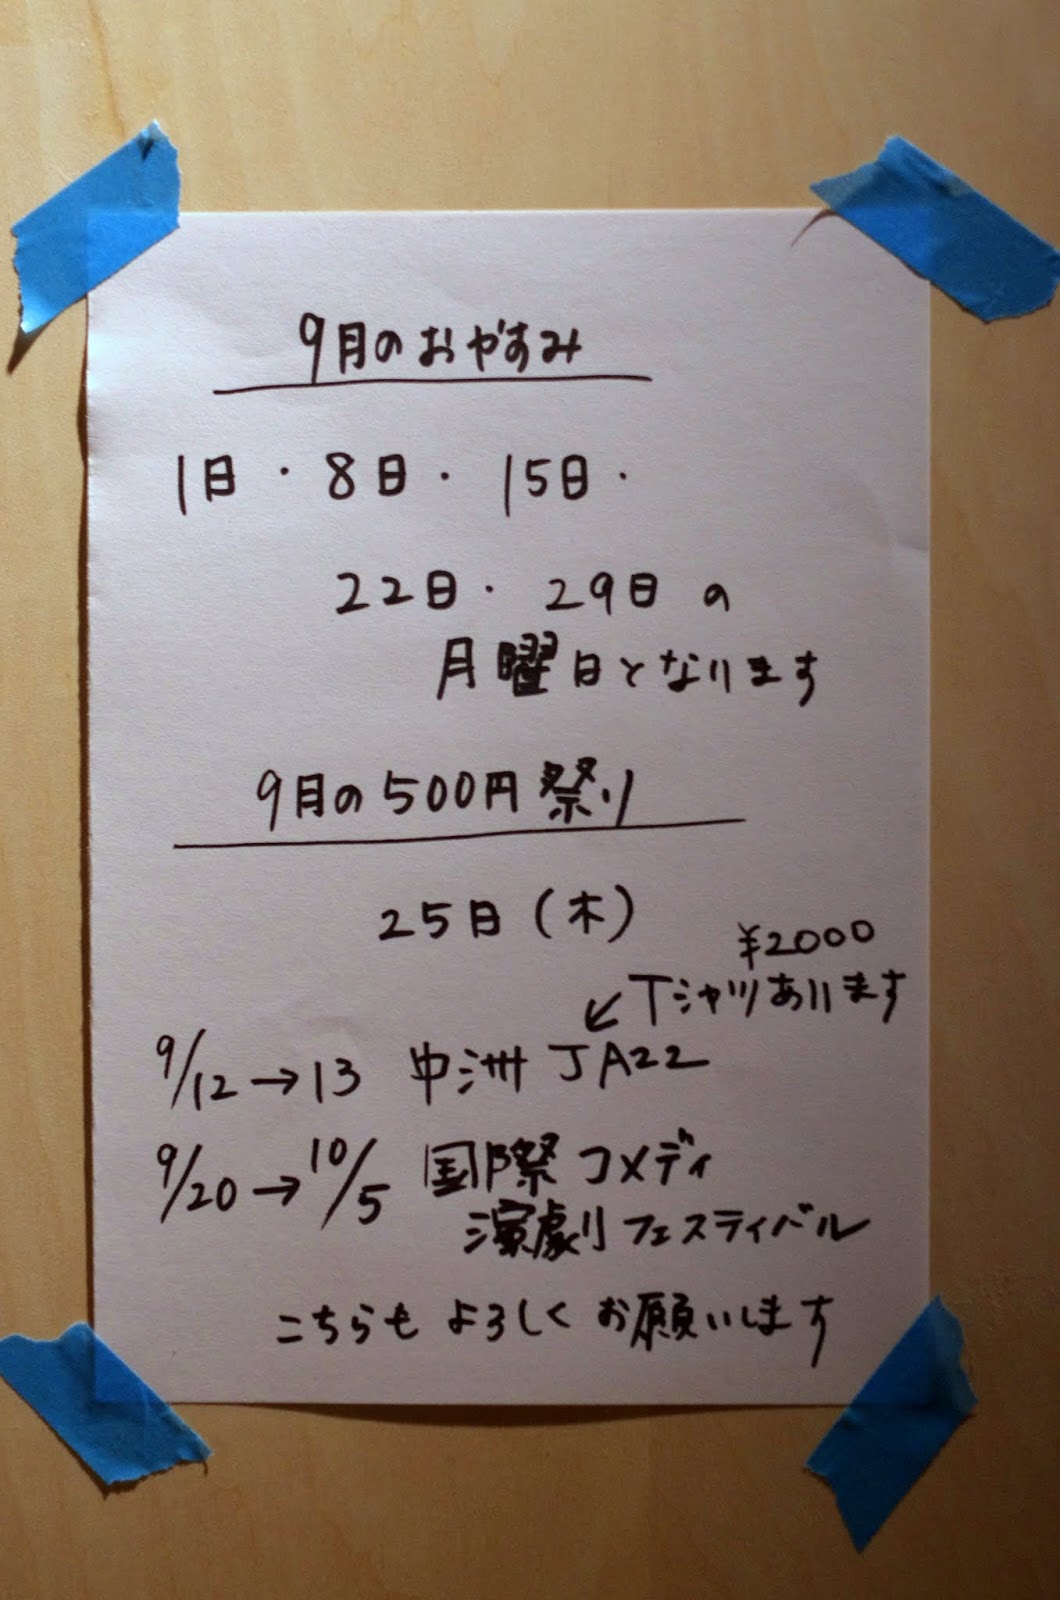 9月のおやすみ
1日・8日・15日・
22日・29日の
月曜日となります
9月の500円祭り
25日(木)
¥2000
↙Tシャツあります
9/12→13 中洲JAZZ
9/20→10/5 国際コメディ
演劇フェスティバル
こちらもよろしくお願いします